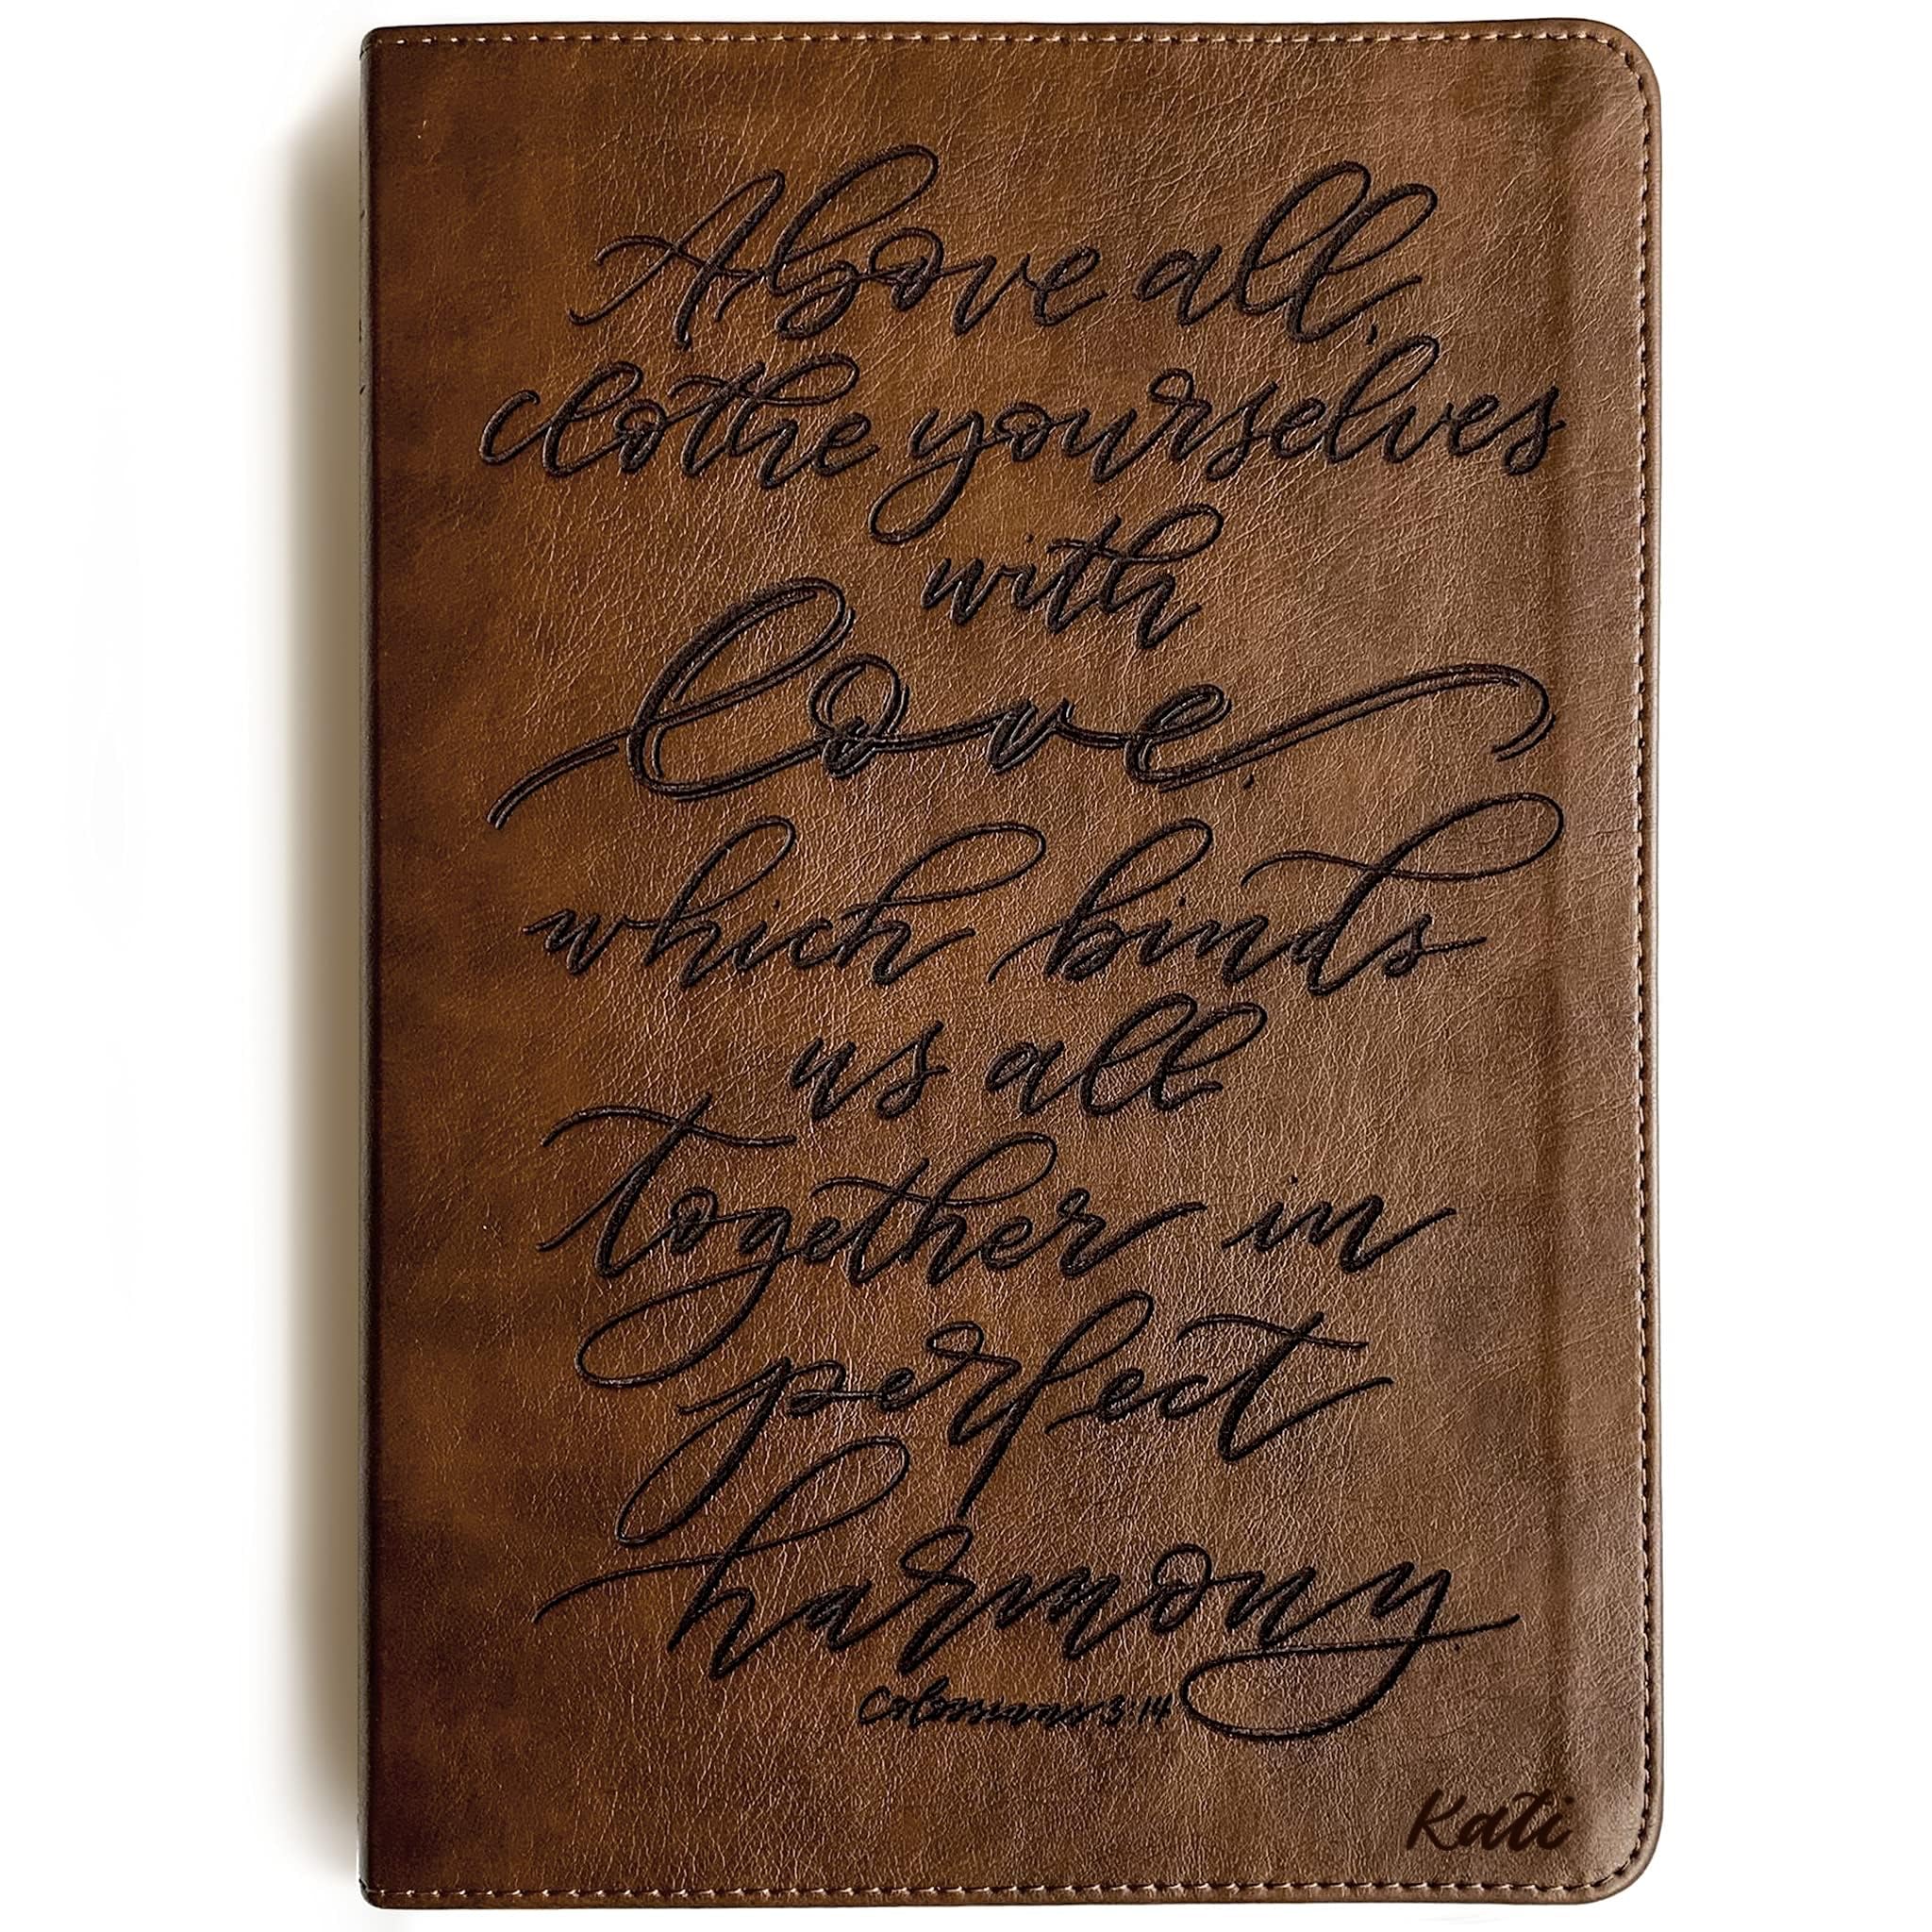 Above all,
clothe yourselves
with
love,
which binds
us all
together in
perfect
harmony
Colossians 3:14
Kati